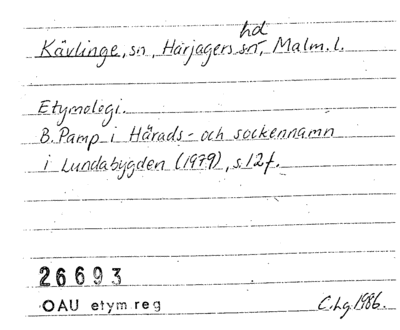 hd
Kävlinge, sn, Harjagers sn, Malm. l.
Etymologi.
B. Pamp i Härads- och sockennamn
i Lundabygden (1979), s. 12 f.
26693
OAU etym reg C. Lg. 1986.